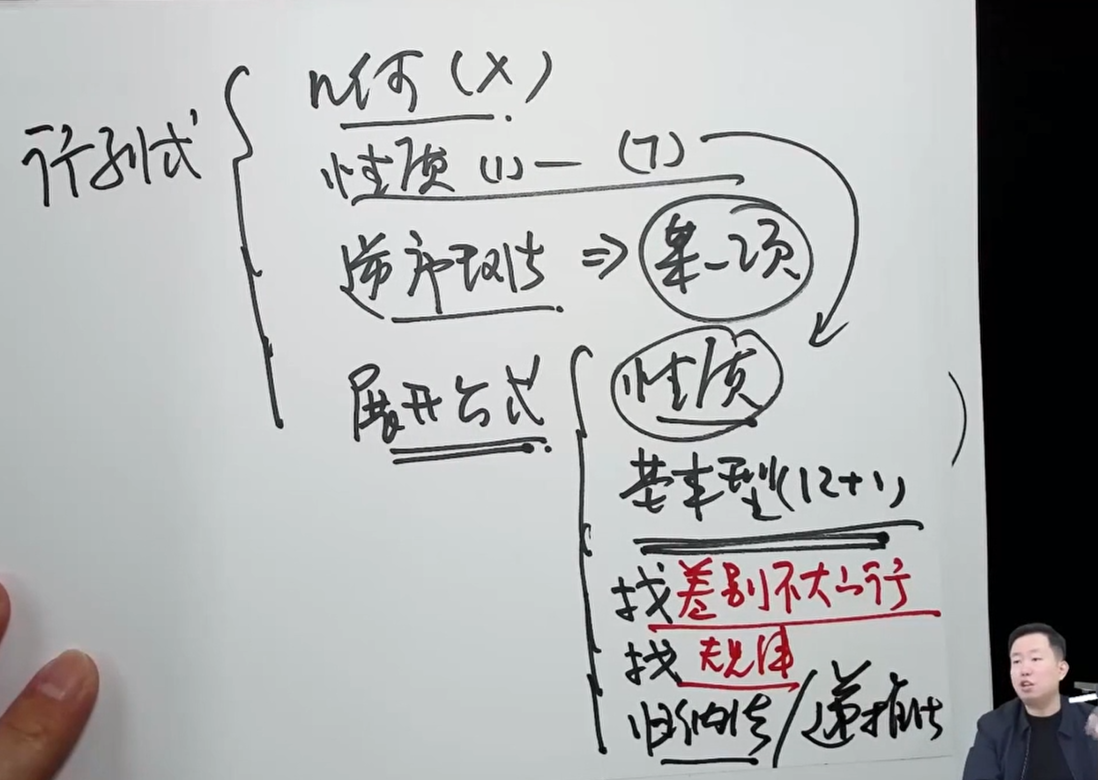 行列式
几何（X）
性质 (1) — (7)
逆序数法 ⇒ 某一项
展开公式
性质
基本型(12+1)
找差别不大的行
找规律
归纳法/递推法